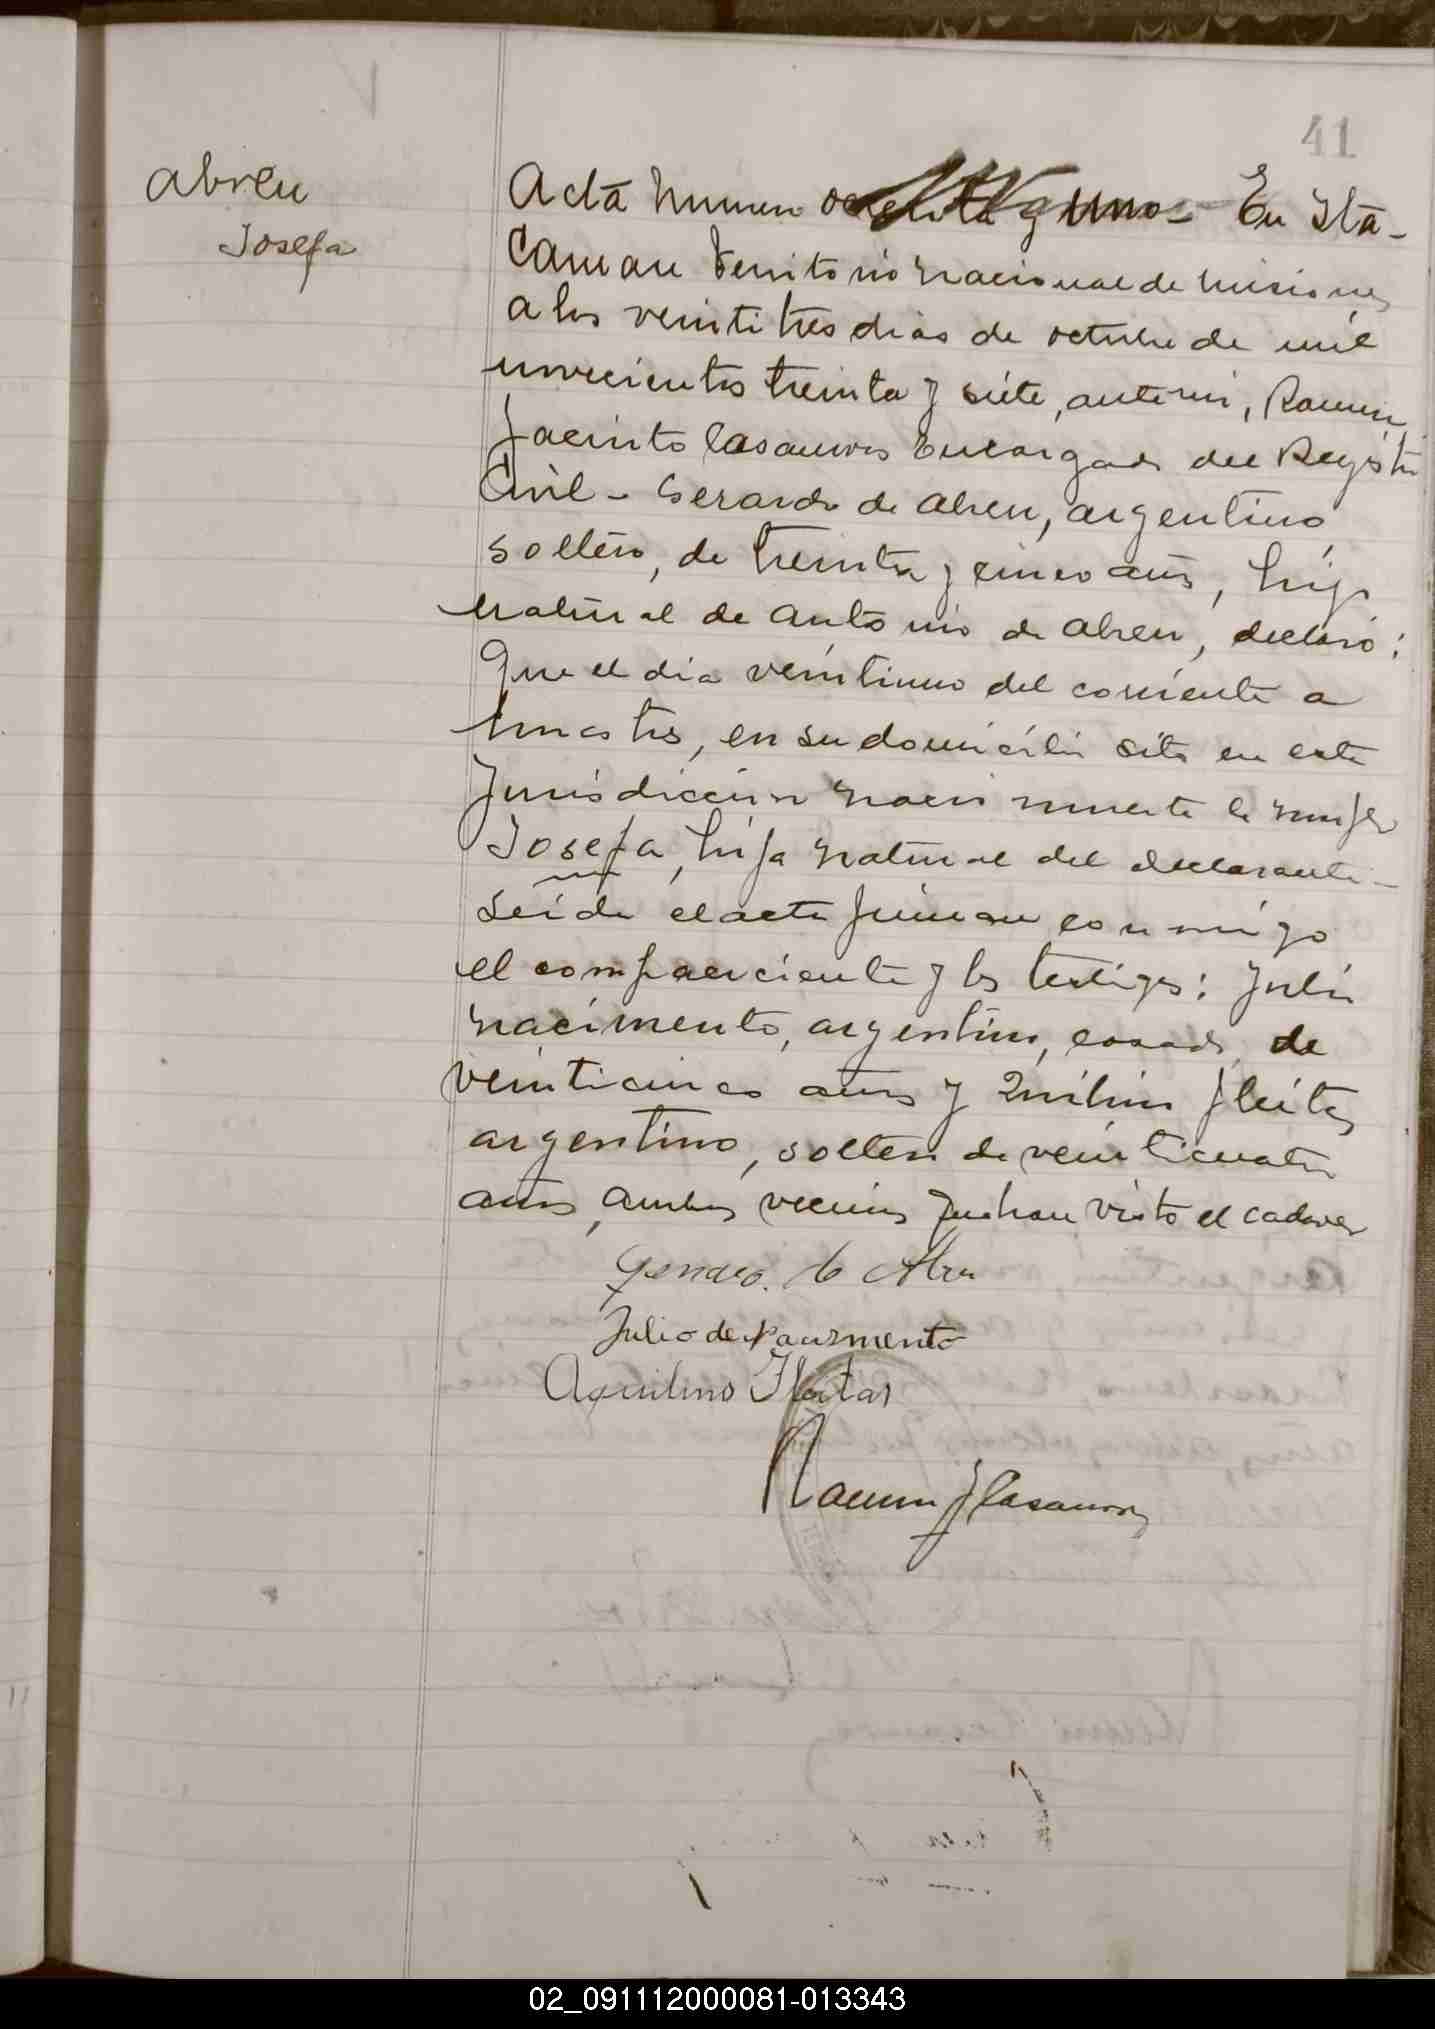 41
Abreu
Josefa
Acta número ochenta y uno - En Ita-
Caruaré territorio nacional de Misiones
a los veintitres dias de octubre de mil
novecientos treinta y siete, ante mi, Ramon
Jacinto Casanova Encargado del Registro
Civil - Gerardo de Abreu, argentino
soltero, de treinta y cinco años, hijo
natural de Antonio de Abreu, declaró:
Que el dia veintiuno del corriente a
las tres, en su domicilio sito en esta
Jurisdiccion nació muerta la mujer
Josefa, hija natural del declarante -
Leida el acta firman conmigo
el compareciente y los testigos: Julio
Nacimento, argentino, casado, de
veinticinco años y Fleitas
argentino, soltero de veinticuatro
años, ambos vecinos que han visto el cadaver
de
Julio de Nacimento
Aquilino Fleitas
Ramon J Casanova
02_091112000081-013343